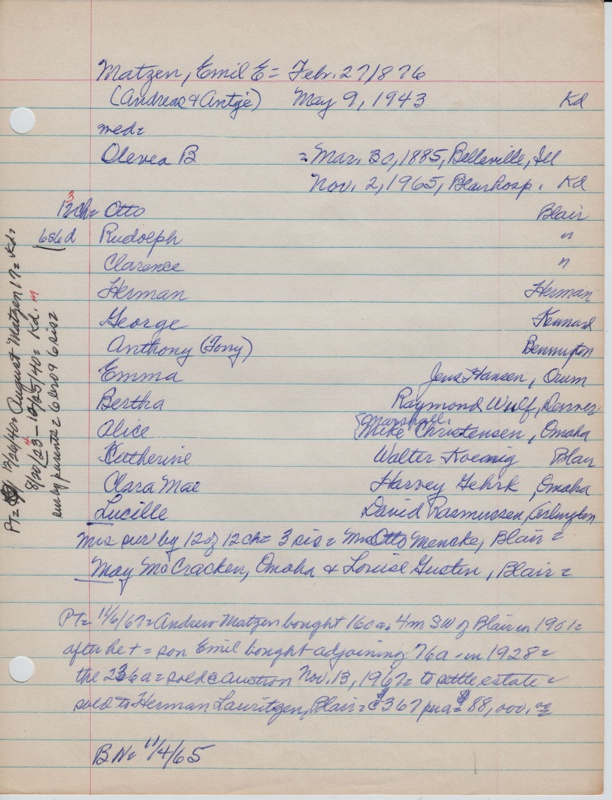 Matzen, Emil E = Febr. 27 1876
(Andreas & Antje) May 9, 1943 Kd
med=
Olevea B = Mar. 30, 1885, Belleville, Ill
Nov. 2, 1965, Blair hosp. Kd
3
12 ch= Otto Blair
6s6d Rudolph "
Clarence "
Herman Herman
George Kennard
Anthony (Tony) Bennington
Emma Jens Hansen, Orum
Bertha Raymond Wulf, Denver
Marshall
Alice Mike Christensen, Omaha
Katherine Walter Koenig Blair
Clara Mae Harvey Gehrk, Omaha
Lucille David Rasmussen, Arlington
Mrs sur by 12 of 12 ch= 3 sis = Mrs Otto Mencke, Blair =
May McCracken, Omaha & Louise Gustin, Blair =
Pt= 11/6/67= Andrew Matzen bought 160a. 4m SW of Blair in 1901=
after he + = son Emil bought adjoining 76a in 1928=
the 236a = sold @ auction Nov. 13, 1967= to settle estate =
sold to Herman Lauritzen, Blair = @ $367 per a = $88,000.00
B N= 11/4/65
Pt= August Matzen 17= Kd=
8/20/23 - 10/25/40= Kd.
sur by parents = 6 bro 9 6 sis=